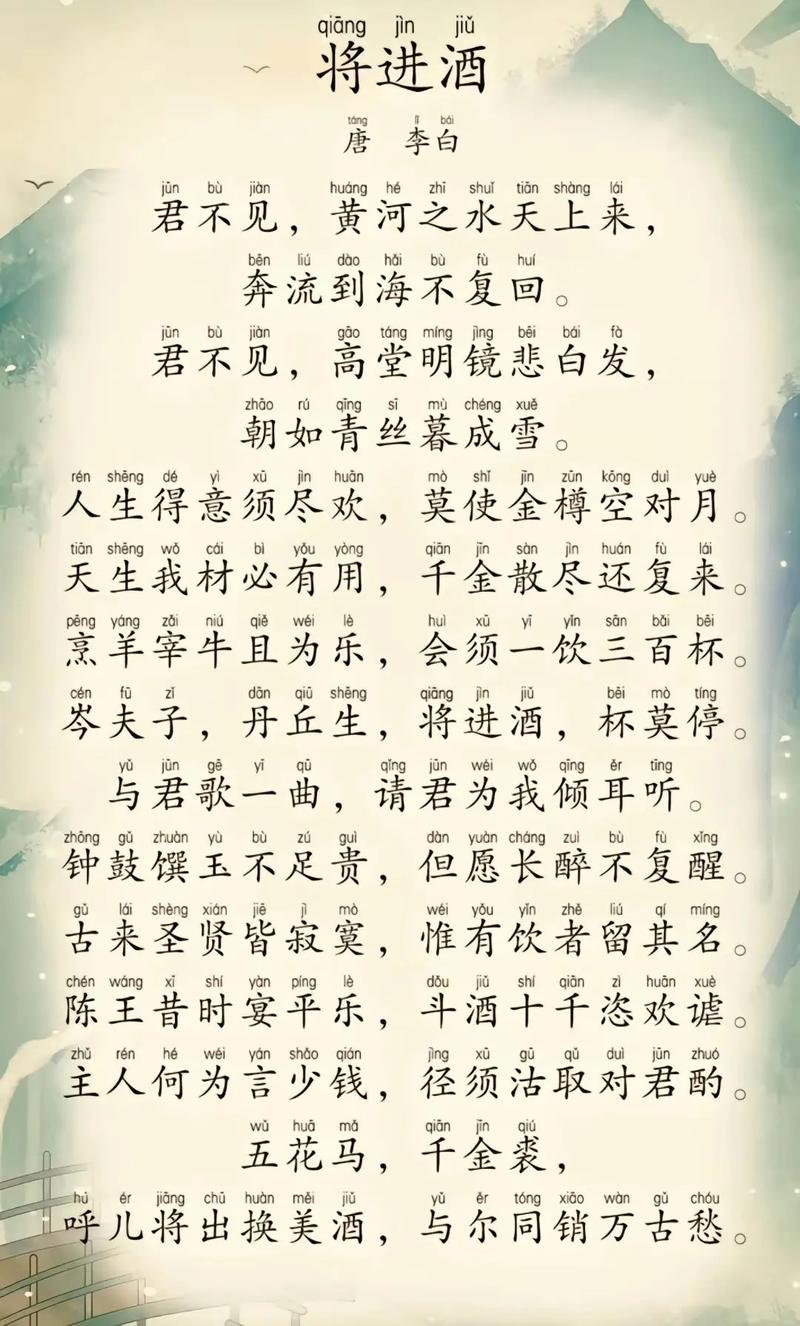 qiāng jìn jiǔ
将进酒
táng lǐ bái
唐 李白
jūn bù jiàn huáng hé zhī shuǐ tiān shàng lái
君不见，黄河之水天上来，
bēn liú dào hǎi bù fù huí
奔流到海不复回。
jūn bù jiàn gāo táng míng jìng bēi bái fà
君不见，高堂明镜悲白发，
zhāo rú qīng sī mù chéng xuě
朝如青丝暮成雪。
rén shēng dé yì xū jìn huān mò shǐ jīn zūn kōng duì yuè
人生得意须尽欢，莫使金樽空对月。
tiān shēng wǒ cái bì yǒu yòng qiān jīn sàn jìn huán fù lái
天生我材必有用，千金散尽还复来。
pēng yáng zǎi niú qiě wéi lè huì xū yī yǐn sān bǎi bēi
烹羊宰牛且为乐，会须一饮三百杯。
cén fū zǐ dān qiū shēng qiāng jìn jiǔ bēi mò tíng
岑夫子，丹丘生，将进酒，杯莫停。
yǔ jūn gē yī qǔ qǐng jūn wéi wǒ qīng ěr tīng
与君歌一曲，请君为我倾耳听。
zhōng gǔ zhuàn yù bù zú guì dàn yuàn cháng zuì bù fù xǐng
钟鼓馔玉不足贵，但愿长醉不复醒。
gǔ lái shèng xián jiē jì mò wéi yǒu yǐn zhě liú qí míng
古来圣贤皆寂寞，惟有饮者留其名。
chén wáng xī shí yàn píng lè dǒu jiǔ shí qiān zì huān xuè
陈王昔时宴平乐，斗酒十千恣欢谑。
zhǔ rén hé wéi yán shǎo qián jìng xū gū qǔ duì jūn zhuó
主人何为言少钱，径须沽取对君酌。
wǔ huā mǎ qiān jīn qiú
五花马，千金裘，
hū ér jiāng chū huàn měi jiǔ yǔ ěr tóng xiāo wàn gǔ chóu
呼儿将出换美酒，与尔同销万古愁。